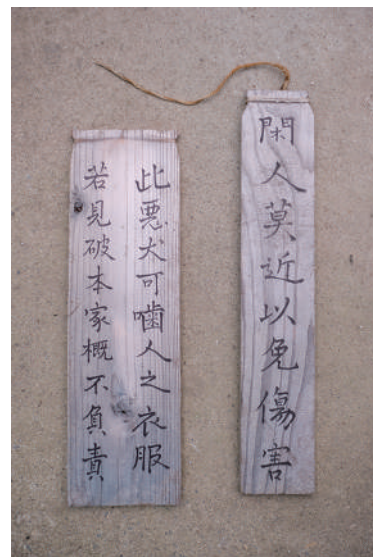 閑人莫近以免傷害
此悪犬可噛人之衣服
若見破本家概不負責